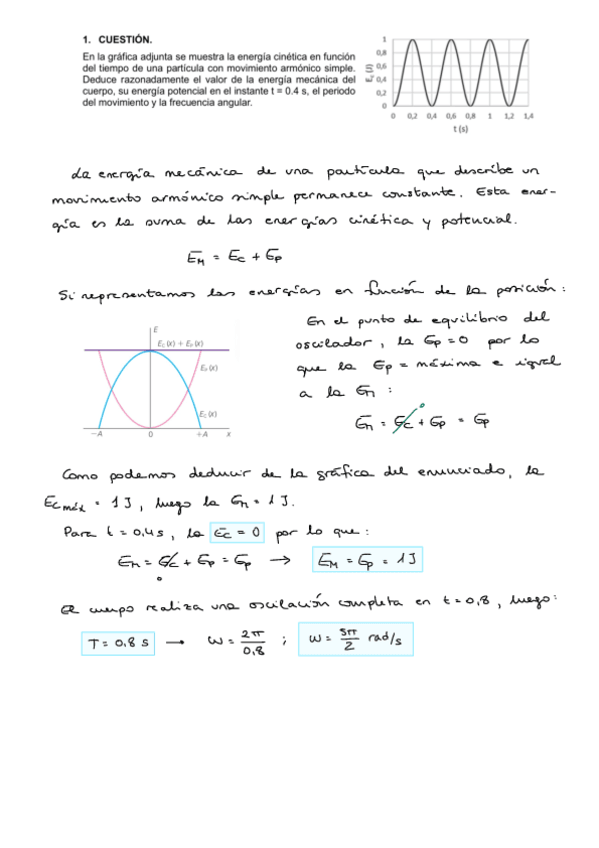 1. CUESTIÓN.
En la gráfica adjunta se muestra la energía cinética en función
del tiempo de una partícula con movimiento armónico simple.
Deduce razonadamente el valor de la energía mecánica del
cuerpo, su energía potencial en el instante t = 0.4 s, el periodo
del movimiento y la frecuencia angular.
1
0,8
0,6
0,4
0,2
0
Ec (J)
0 0,2 0,4 0,6 0,8 1 1,2 1,4
t (s)
La energía mecánica de una partícula que describe un
movimiento armónico simple permanece constante. Esta ener-
gía es la suma de las energías cinética y potencial.
EM = Ec + Ep
Si representamos las energías en función de la posición:
E
Ec (x) + Ep (x)
Ep (x)
Ec (x)
-A 0 +A x
En el punto de equilibrio del
oscilador, la Ep = 0 por lo
que la Ep = máxima e igual
a la Em :
Em = Ec + Ep = Ep
0
Como podemos deducir de la gráfica del enunciado, la
Ec máx = 1 J, luego la Em = 1 J.
Para t = 0,4 s, la Ec = 0 por lo que:
Em = Ec + Ep = Ep → EM = Ep = 1 J
0
El cuerpo realiza una oscilación completa en t = 0,8, luego:
T = 0,8 s → ω = 2π/0,8 ; ω = 5π/2 rad/s